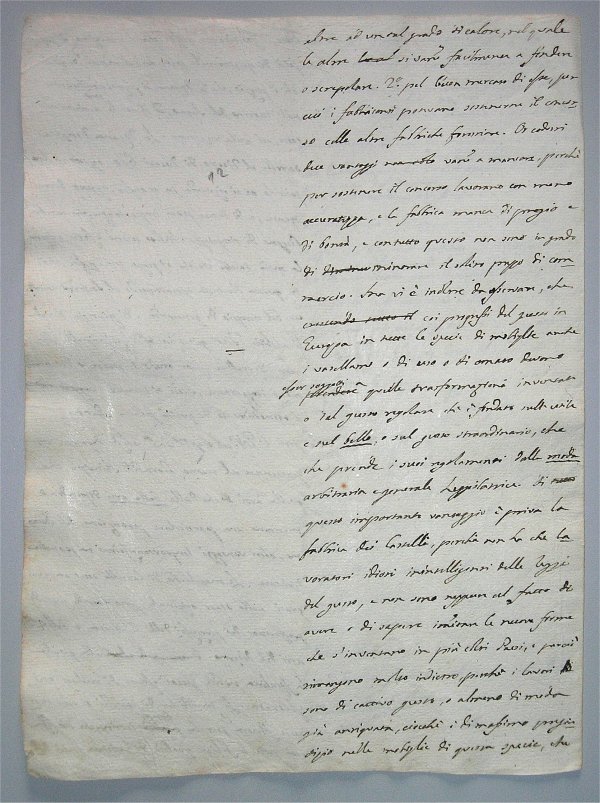 altre ad un tal grado di calore, nel quale
le altre si van facilmente a fendere
o screpolare. 2º. pel buon mercato di esse, per
cui i fabbricanti possano sostenere il concor-
so colle altre fabbriche forestiere. Or codesti
due vantaggi van a mancare, perchè
per sostenere il concorso lavorano con meno
accuratezza, e la fabrica manca di pregio e
di bontà, e con tutto questo non sono in grado
di minorare il prezzo di com-
mercio. Ma vi è inoltre da osservare, che
crescendo tutto il coi progressi del gusto in
Europa in tutte le specie di mobiglie anche
i vasellami o di uso o di ornato devono
esser soggetti
quelle trasformazioni inventate
o dal gusto regolare che è fondato sull' utile
e sul bello, o sul gusto straordinario, che
che prende i suoi regolamenti dalla moda
arbitraria e generale legislatrice. Di
questo importante vantaggio è priva la
fabrica dei Castelli, perchè non ha che la
voratori idioti inintelligenti delle leggi
del gusto, e non sono neppure al fatto di
avere e di sapere imitare le nuove forme
che s'inventano in più Paesi, e perciò
rimangono molto indietro, perchè i lavori
sono di cattivo gusto, o almeno di moda
già antiquata, ciocchè è di massimo pregiu
dizio nelle mobiglie di questa specie, che
12